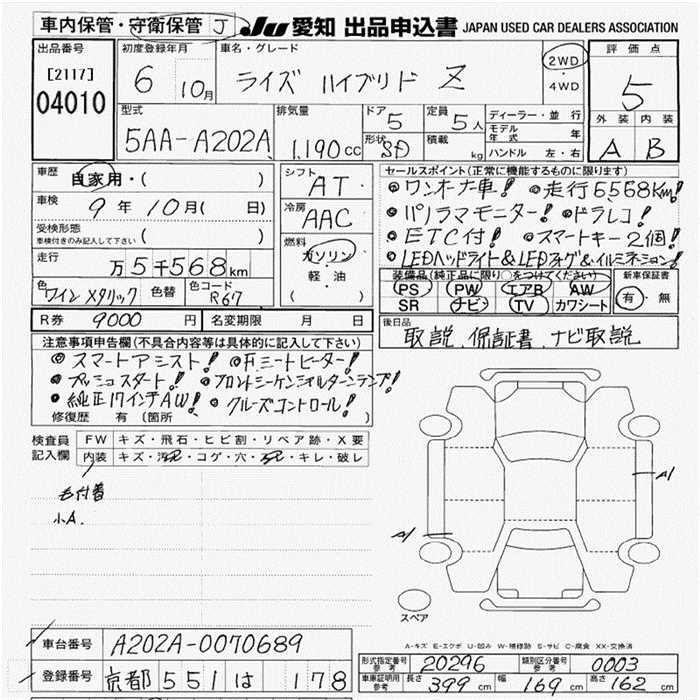 車内保管・守衛保管 J JU 愛知 出品申込書 JAPAN USED CAR DEALERS ASSOCIATION
出品番号 初度登録年月 車名・グレード 評価点
[2117] 6 10月 ライズ ハイブリド Z 2WD・4WD 5
04010 外装 内装
型式 排気量 ドア 定員 ディーラー・並行
5AA-A202A 1,190cc 5 5人 モデル年式 年
形状 SD 積載 kg ハンドル 左・右 A B
車歴 自家用・( ) シフト AT セールスポイント(正常に機能するものに限ります)
車検 9年10月( 日) 冷房 AAC ◎ワンオーナー車! ◎走行6568Km!
受検形態 ( ) ◎パノラマモニター! ◎ドラレコ!
車検付きのみ記入して下さい 燃料 ◎ETC付! ◎スマートキー2個!
走行 万5千568km ガソリン・軽・油 ◎LEDヘッドライト&LEDフォグ&イルミネーション!
色 ワインメタリック 色替 色コード R67 装備品(純正品に限り○をつけてください) 新車保証書
PS PW エアB AW 有・無
SR ナビ TV カワシート
R券 9000円 名変期限 月 日 後日品
取説、保証書、ナビ取説
注意事項申告欄(不具合内容等は具体的に記入して下さい)
◎スマートアシスト! ◎Fシートヒーター!
◎プッシュスタート! ◎フロントシーケンシャルターンランプ!
◎純正17インチAW! ◎クルーズコントロール!
修復歴 有(箇所 )
検査員記入欄 FW キズ・飛石・ヒビ割・リペア跡・X要
内装 キズ・汚レ・コゲ・穴・・キレ・破レ
毛付着
小A.
A1
A1
スペア
A-キズ E-エクボ U-凹み W-補修跡 S-サビ C-腐食 XX-交換済
車台番号 A202A-0070689
登録番号 京都 551 は 178
形式指定番号 参考 20296 類別区分番号 参考 0003
車庫証明用 参考 長さ 399cm 幅 169cm 高さ 162cm